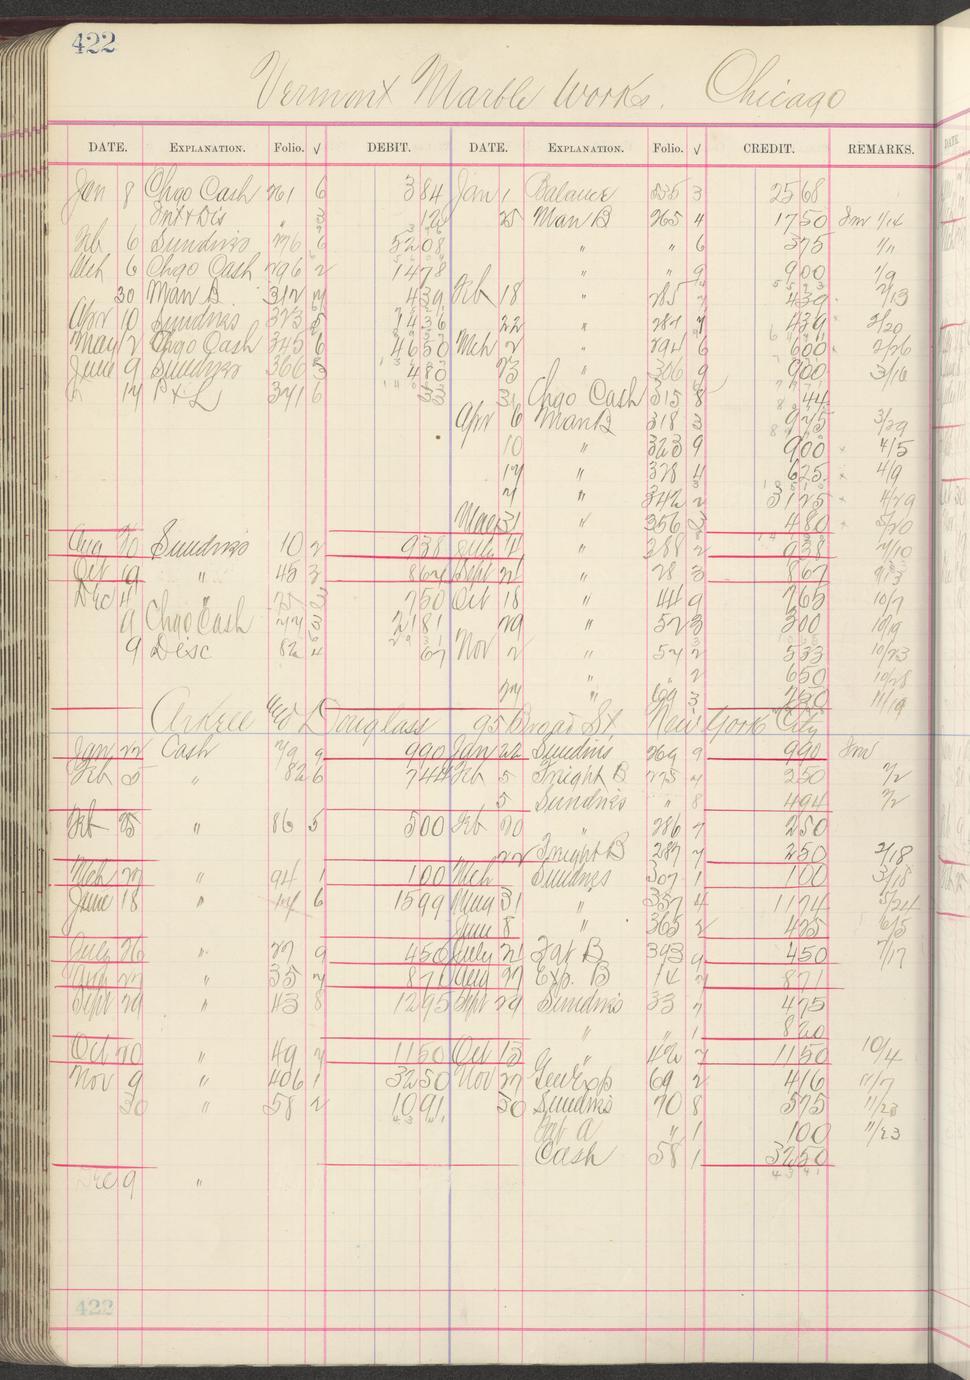 422
Vermont Marble Works. Chicago
DATE. EXPLANATION. Folio. √ DEBIT. DATE. EXPLANATION. Folio. √ CREDIT. REMARKS.
Jan 8 Chgo Cash 261 6 384 Jan 1 Balance 235 3 2568
Int & Dis " 3 25 Man B 265 4 1750 Inv 1/14
Feb 6 Sundries 276 6 5208 " " 6 375
Mch 6 Chgo Cash 296 2 1478 " " 9 900 1/9
30 Man B 312 439 Feb 18 " 285 7 439 2/13
Apr 10 Sundries 323 1436 22 " 287 7 439 2/20
May 2 Chgo Cash 345 6 4650 Mch 2 " 294 6 600 2/26
June 9 Sundries 366 3 480 23 " 306 9 900 3/16
" 17 P & L 371 6 33 31 Chgo Cash 315 8 44
Apr 6 Man B 318 3 975 3/29
10 " 323 9 900 4/5
17 " 328 4 625 4/9
" 342 2 3125 4/29
May 31 " 356 480 5/20
Aug 20 Sundries 10 2 938 " 288 2 938 7/10
Oct 19 " 45 3 867 Sept 21 " 28 3 867
Dec 4 " 750 Oct 18 " 44 9 765 10/7
9 Chgo Cash 77 2181 29 " 52 3 300 10/9
9 Disc 82 4 67 Nov 2 " 54 2 533 10/23
" 2 650 10/28
27 " 69 3 750 11/19
Douglass 95 Broad St. New York City
Jan 22 Cash 79 9 990 Jan 22 Sundries 269 9 990 Inv
Feb 5 " 82 6 744 Feb 5 Freight B 275 7 250 2/2
5 Sundries " 8 494 2/2
Feb 25 " 86 5 500 Feb 20 " 286 7 250
22 Freight B 287 7 250 2/18
Mch 27 " 94 1 100 Mch Sundries 307 1 100 3/18
June 18 " 14 6 1599 May 31 " 357 4 1174 5/24
June 8 " 365 2 425 6/5
July 26 " 27 9 450 July 21 Fgt B 393 9 450 7/17
Aug 27 " 35 7 871 Aug 27 Exp. B 14 7 871
Sept 29 " 43 8 1295 Sept 29 Sundries 33 7 475
" " 1 820
Oct 20 " 49 7 1150 Oct 13 " 42 7 1150 10/4
Nov 9 " 406 1 3250 Nov 27 Gen Exp 69 2 416 11/7
30 " 58 2 1091 30 Sundries 70 8 575 11/23
Fgt A " 1 100 11/23
Cash 58 1 3250
Dec 9 "
422